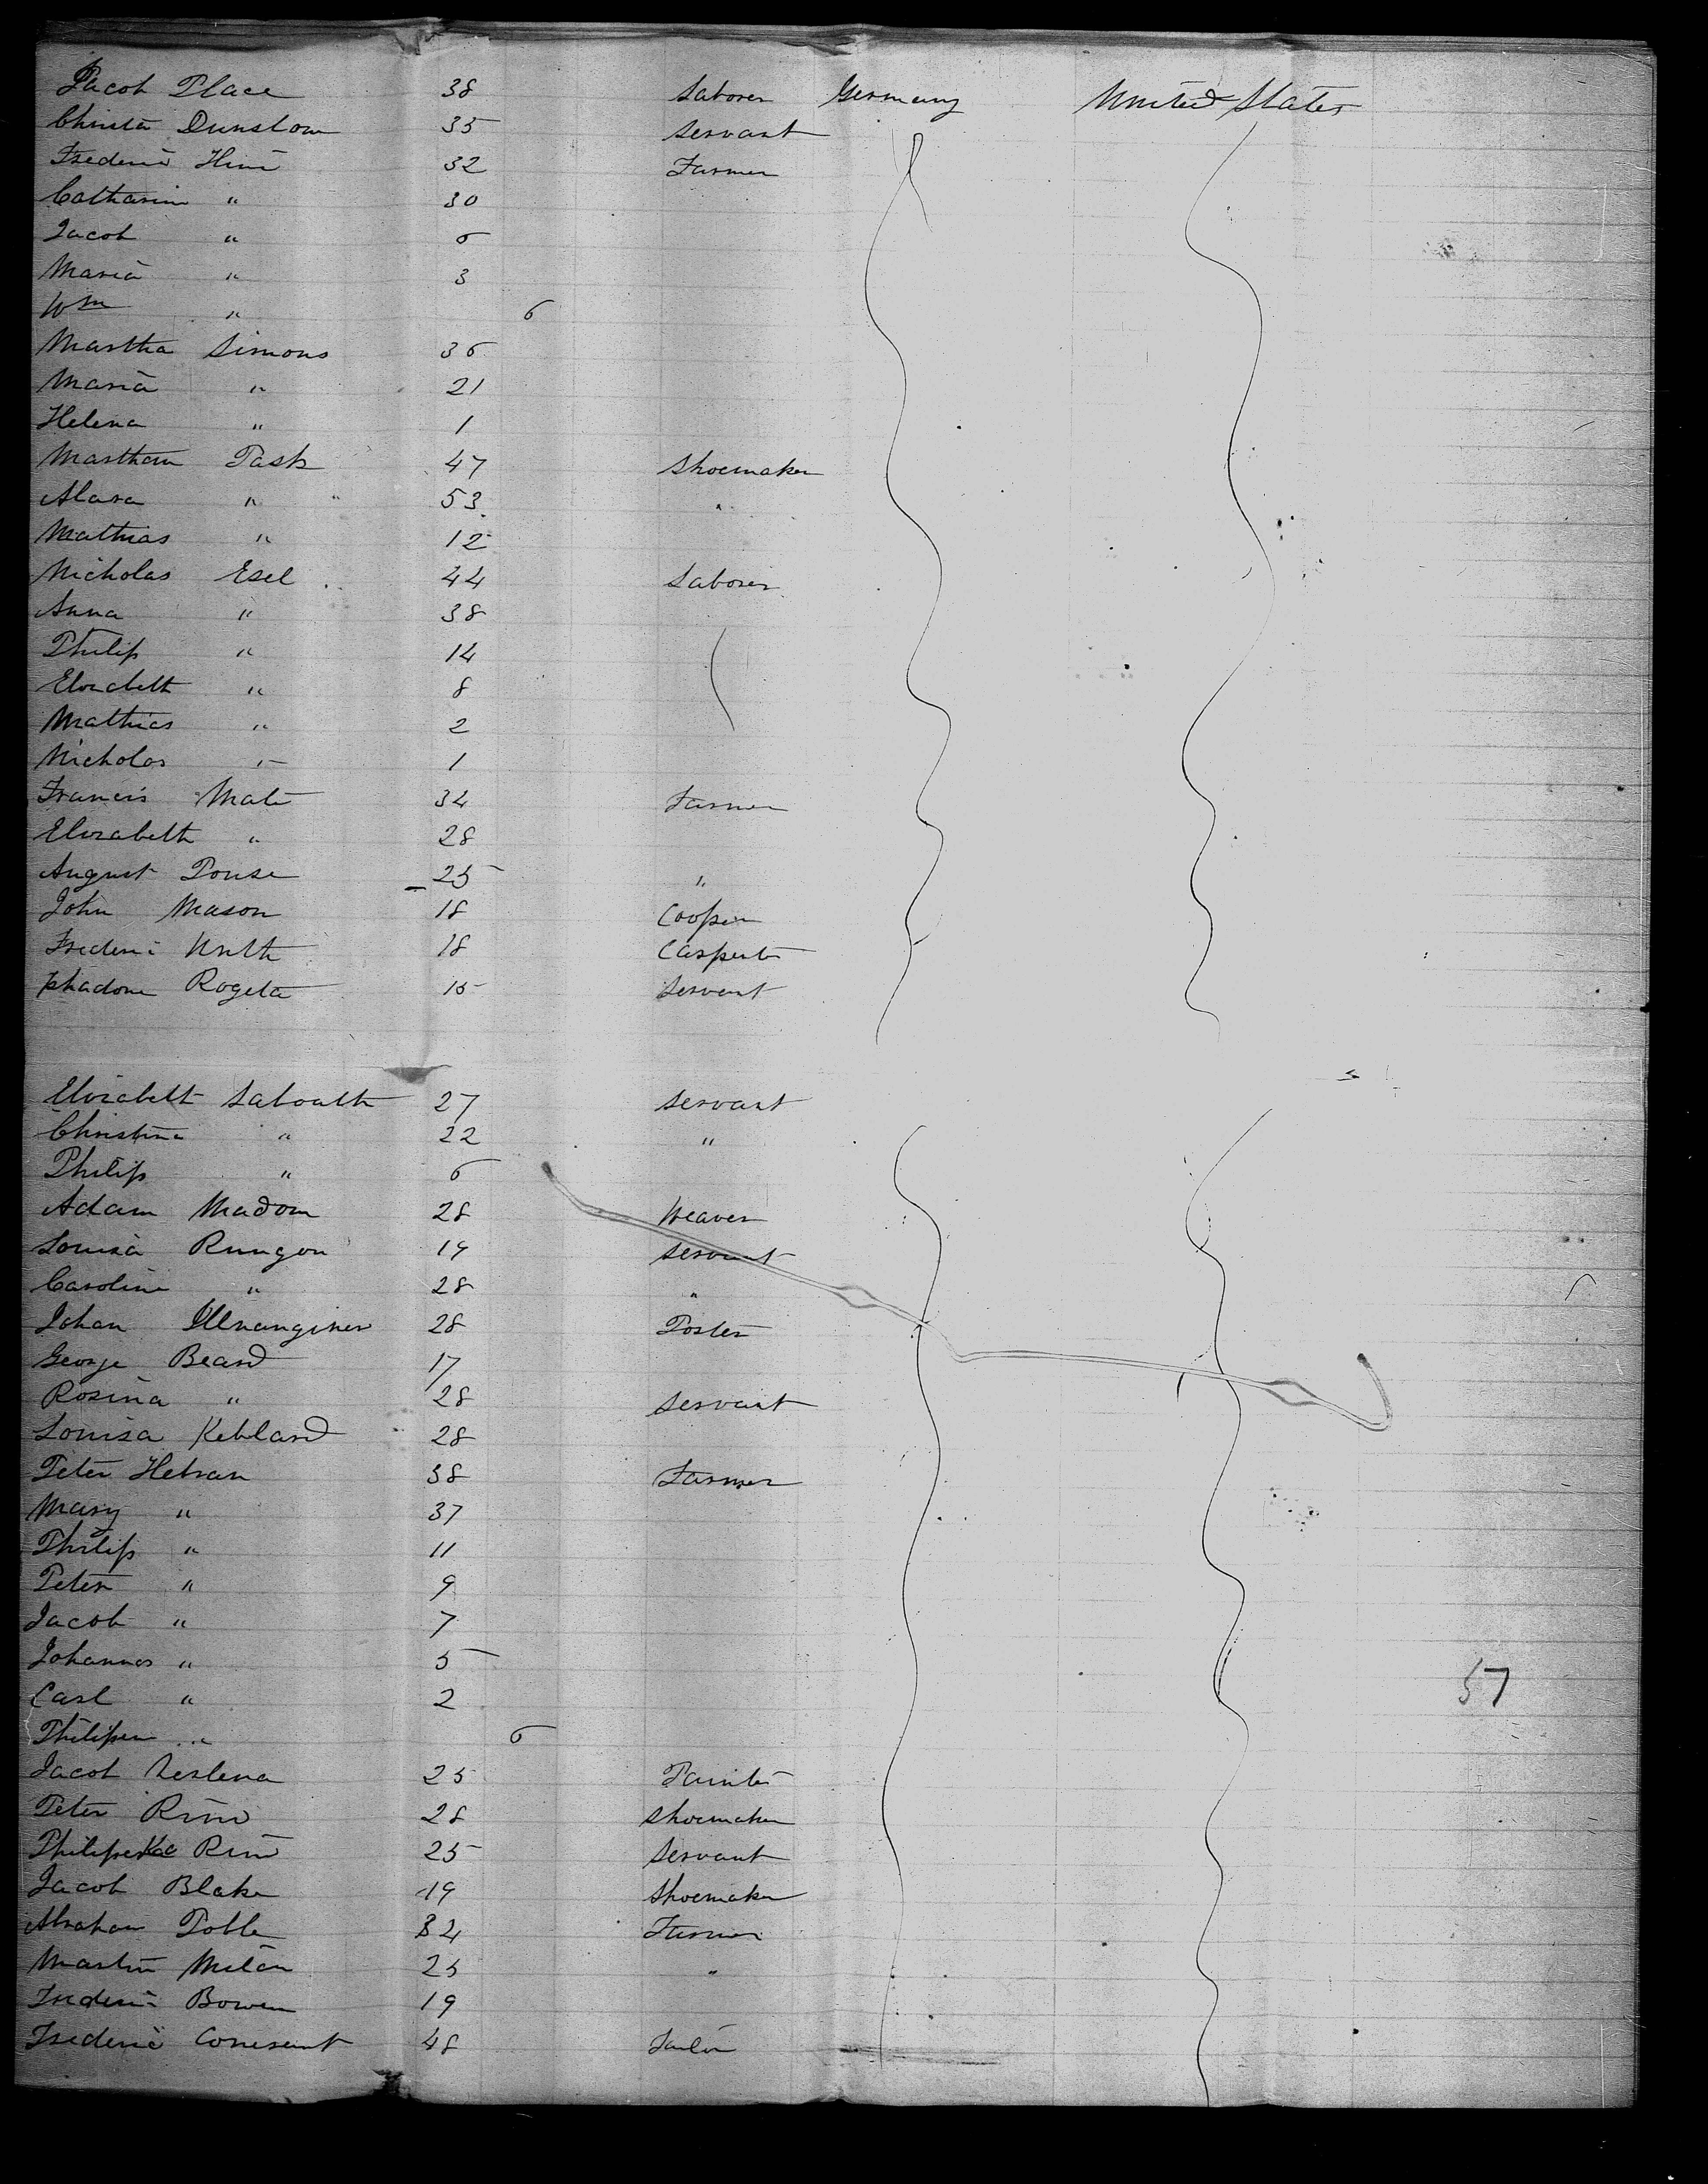 Jacob Place 38 Laborer Germany United States
Christa Dunslow 35 Servant
Frederic 32 Farmer
Catharin " 30
Jacob " 6
Maria " 3
Wm " 6
Martha Simons 36
Maria " 21
Helena " 1
Marthan Task 47 Shoemaker
Alara " 53
Mathias " 12
Nicholas Esel 44 Laborer
Anna " 38
Philip " 14
Elizabeth " 8
Mathias " 2
Nicholas " 1
Francis Mate 34 Farmer
Elizabeth " 28
August Pouse 25 "
John Mason 18 Cooper
Frederic 18 Carpenter
Rogeta 15 Servant
Elizabeth Laboath 27 Servant
Christina " 22 "
Philip " 6
Adam Madom 28 Weaver
Louisa Rungon 19 Servant
Caroline " 28 "
Johan 28 Porter
George Beard 17
Rosina " 28 Servant
Louisa Kebland 28
Peter Hetran 38 Farmer
Mary " 37
Philip " 11
Peter " 9
Jacob " 7
Johannes " 5
Carl " 2
57
Philipen " 6
Jacob 25 Painter
Peter Rino 28 Shoemaker
Rino 25 Servant
Jacob Blake 19 Shoemaker
Abraham Poble 32 Farmer
Martin Milan 25 "
Frederic Bowen 19
Frederic Conesant 48 Tailor